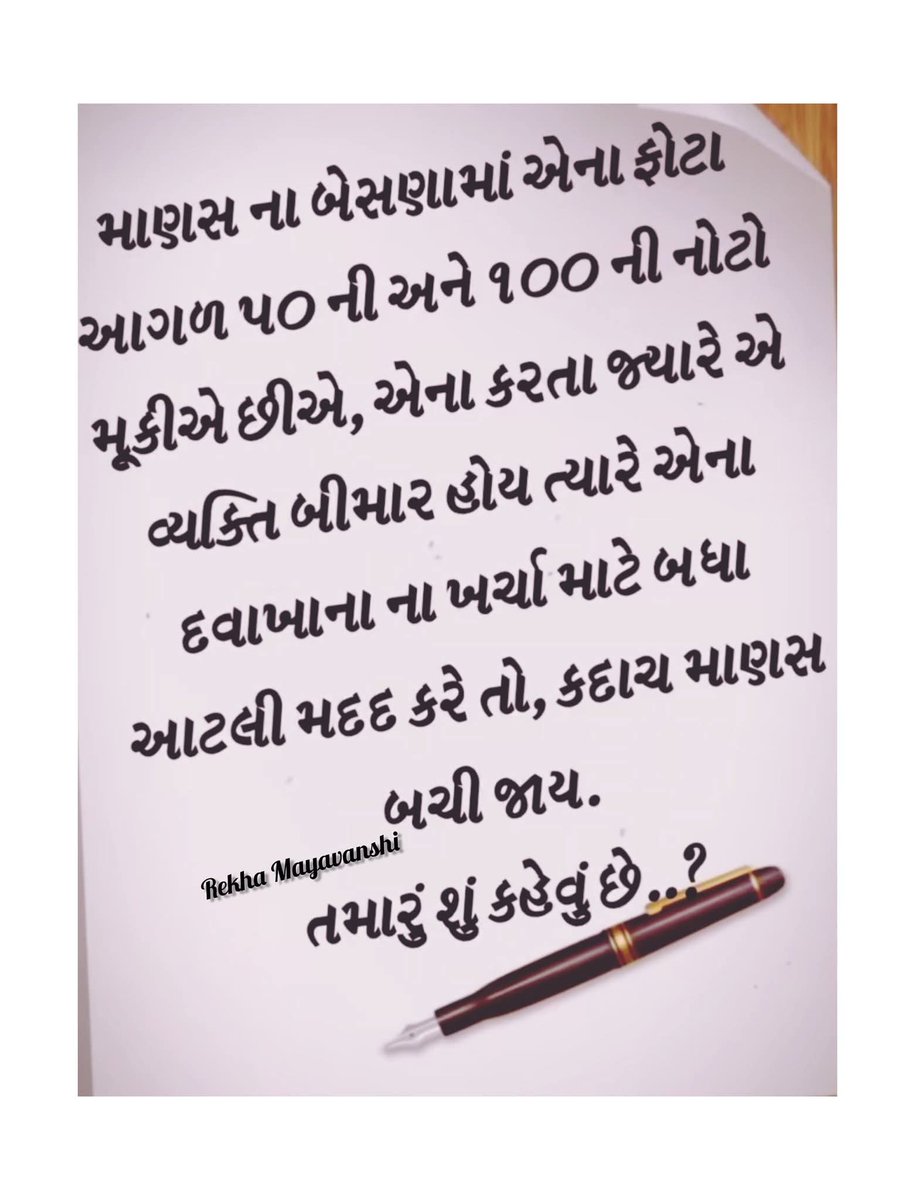 માણસ ના બેસણામાં એના ફોટા
આગળ ૫૦ ની અને ૧૦૦ ની નોટો
મૂકીએ છીએ, એના કરતા જ્યારે એ
વ્યક્તિ બીમાર હોય ત્યારે એના
દવાખાના ના ખર્ચા માટે બધા
આટલી મદદ કરે તો, કદાચ માણસ
બચી જાય.
Rekha Mayavanshi
તમારું શું કહેવું છે..?